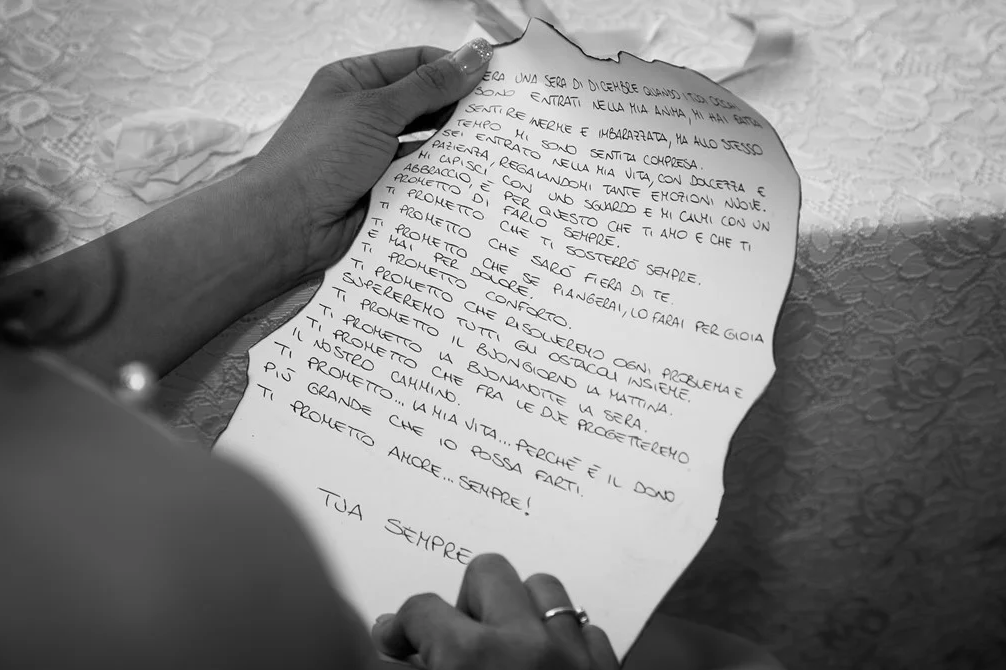 ERA UNA SERA DI DICEMBRE QUANDO I TUOI OCCHI
SONO ENTRATI NELLA MIA ANIMA, MI HAI FATTA
SENTIRE INERME E IMBARAZZATA, MA ALLO STESSO
TEMPO MI SONO SENTITA COMPRESA.
SEI ENTRATO NELLA MIA VITA, CON DOLCEZZA E
PAZIENZA, REGALANDOMI TANTE EMOZIONI NUOVE.
MI CAPISCI CON UNO SGUARDO E MI CALMI CON UN
ABBRACCIO, È PER QUESTO CHE TI AMO E CHE TI
PROMETTO DI FARLO SEMPRE.
TI PROMETTO CHE TI SOSTERRÒ SEMPRE.
TI PROMETTO CHE SARÒ FIERA DI TE.
TI PROMETTO CHE SE PIANGERAI, LO FARAI PER GIOIA
E MAI PER DOLORE.
TI PROMETTO CONFORTO.
TI PROMETTO CHE RISOLVEREMO OGNI PROBLEMA E
SUPEREREMO TUTTI GLI OSTACOLI INSIEME.
TI PROMETTO IL BUONGIORNO LA MATTINA.
TI PROMETTO LA BUONANOTTE LA SERA.
TI PROMETTO CHE FRA LE DUE PROGETTEREMO
IL NOSTRO CAMMINO.
TI PROMETTO... LA MIA VITA... PERCHÈ È IL DONO
PIÙ GRANDE CHE IO POSSA FARTI.
TI PROMETTO AMORE... SEMPRE!
TUA SEMPRE